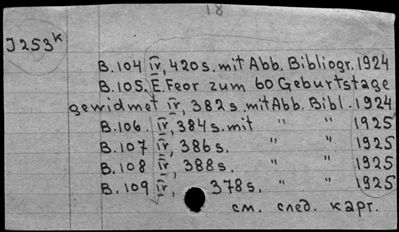 18
J 253ᴷ
B. 104 IV, 420 s. mit Abb. Bibliogr. 1924
B. 105. E. Feor zum 60 Geburtstage
gewidmet IV, 382 s. mit Abb. Bibl. 1924
B. 106. IV, 384 s. mit " " 1925
B. 107 IV, 386 s. " " 1925
B. 108 IV, 388 s. " " 1925
B. 109 IV, 378 s. " " 1925
см. след. карт.